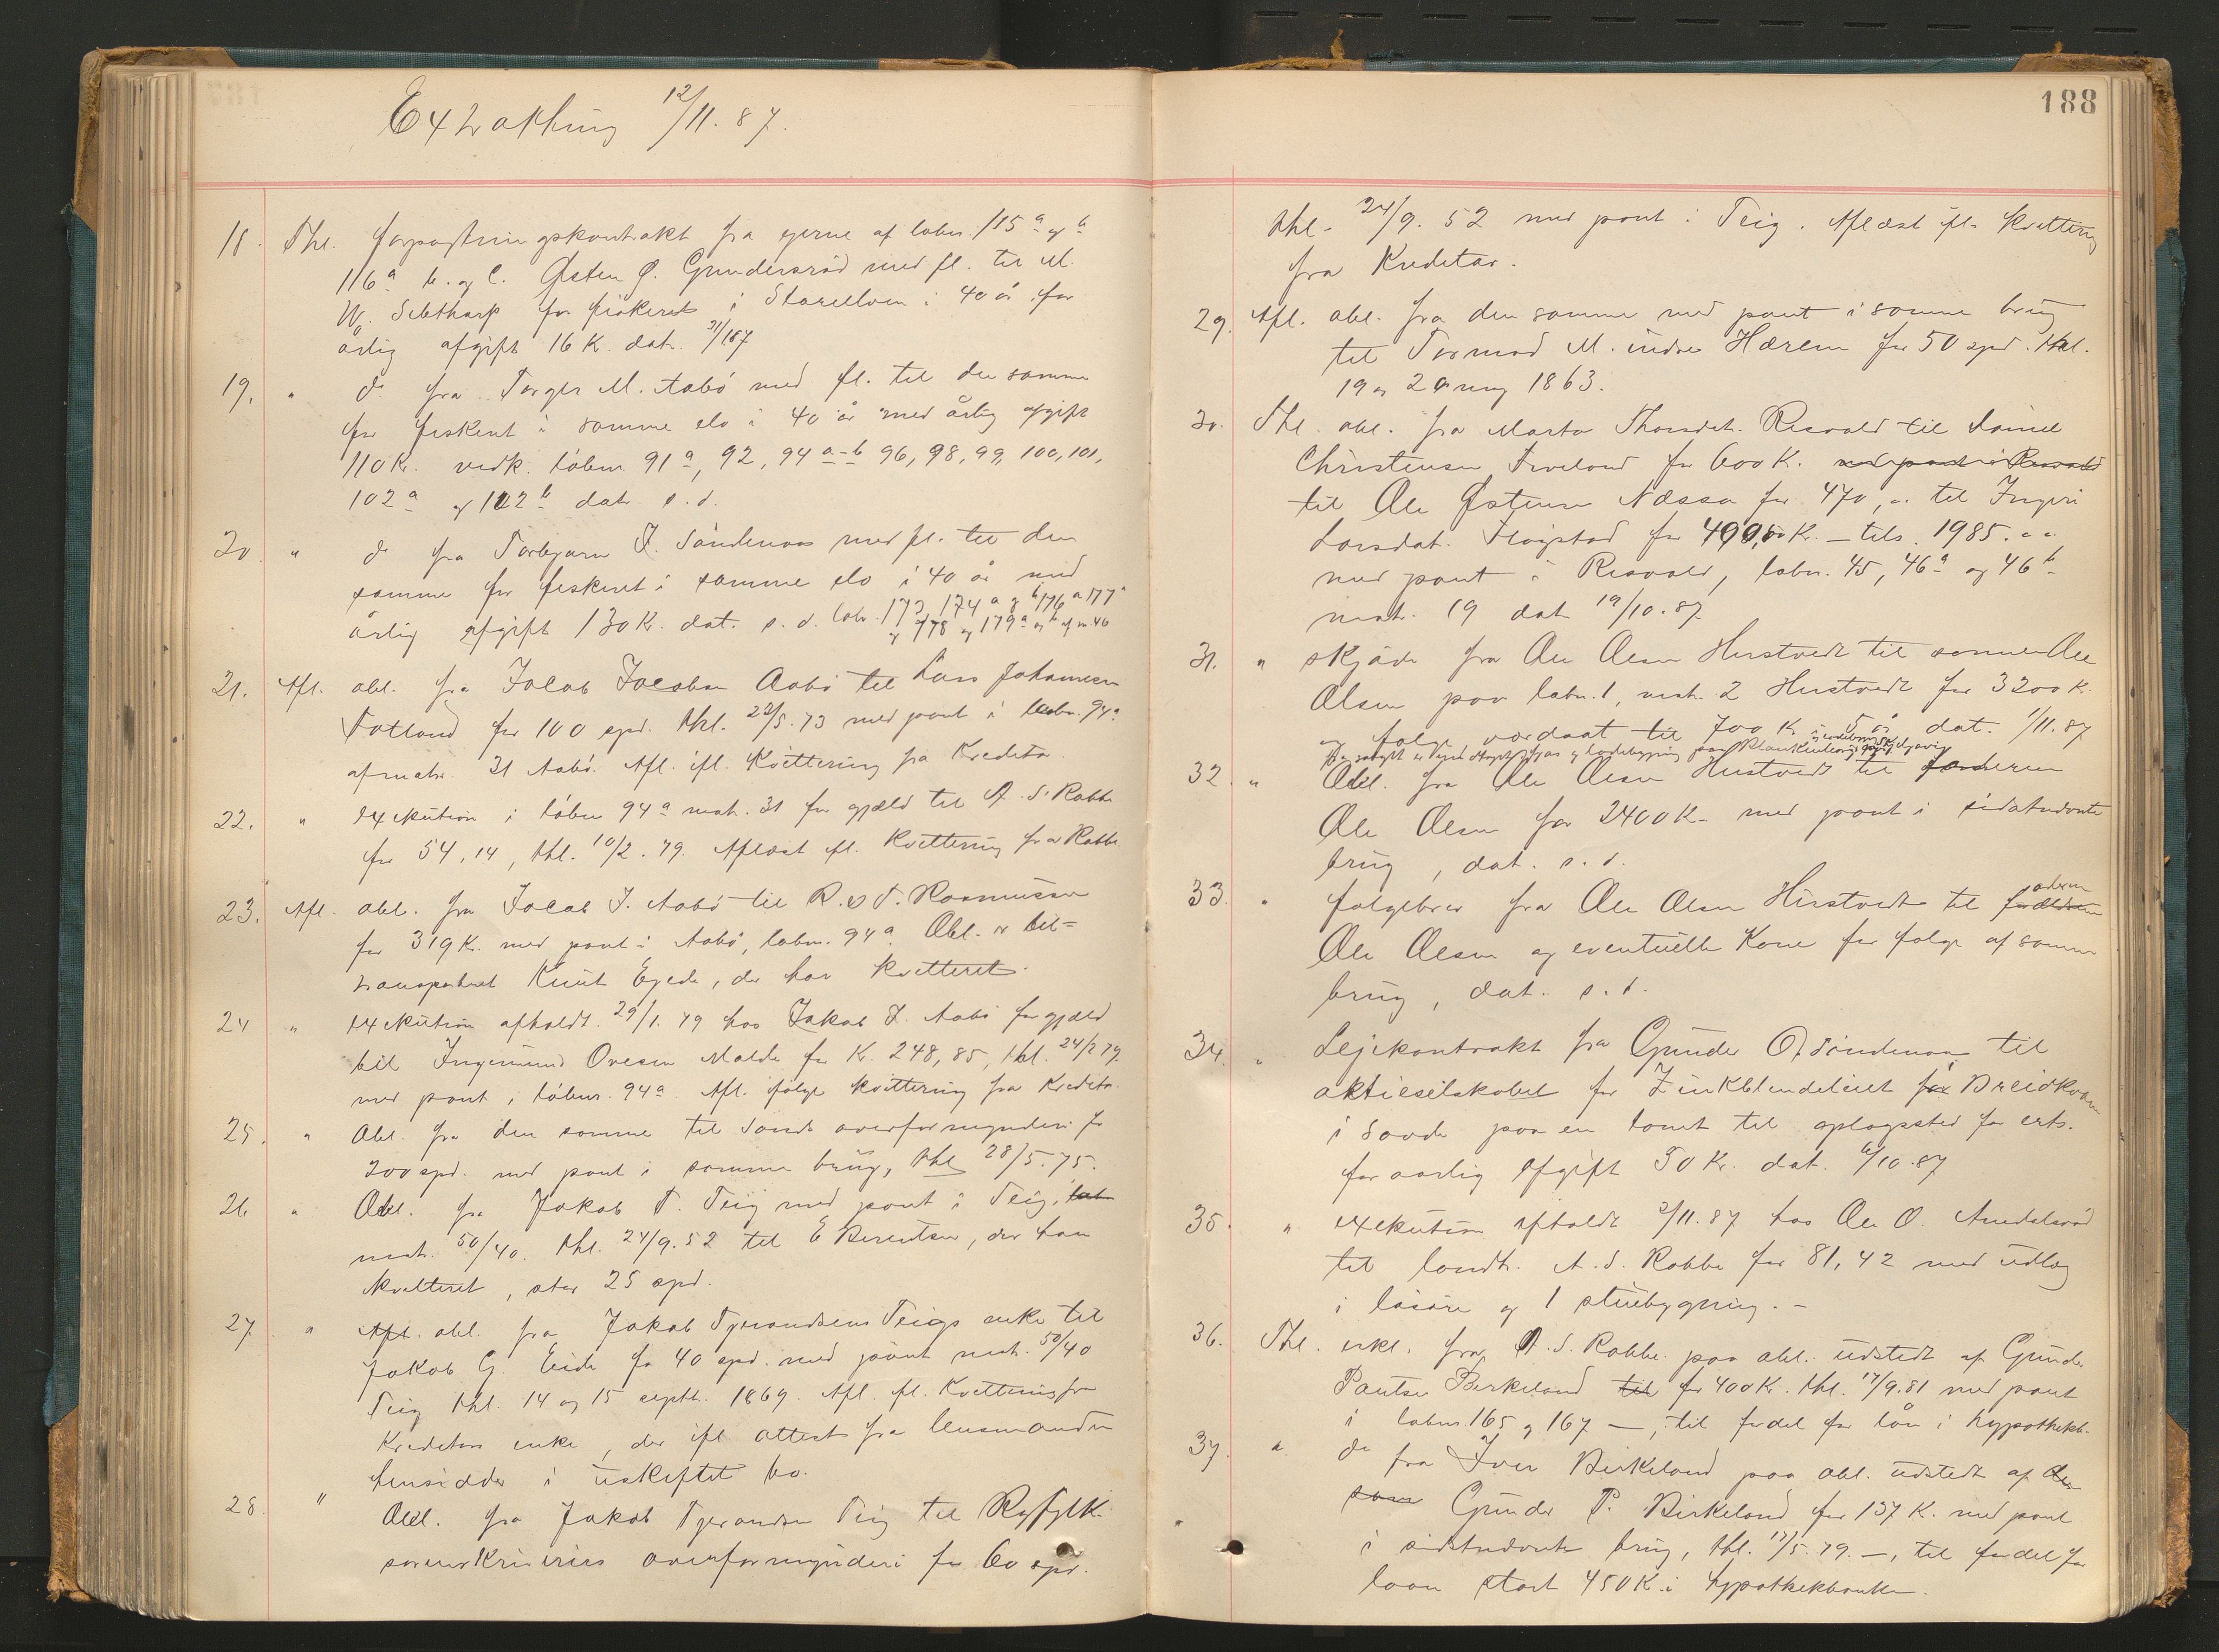 Extrakting 12/11. 87.
18. Thl. forpagtningskontrakt fra eierne af løbn. 115a og b
116a b. og c. Østen Ø. Gundersrød med fl. til M.
W. Sibthorp for fiskeret i Storelven i 40 år for
årlig afgift 16 K. dat. 31/187
19. " do fra Torger M. Aabø med fl. til den samme
for fiskeret i samme elv i 40 år med årlig afgift
110 K. vedk. løbnr. 91a, 92, 94a-b 96, 98, 99, 100, 101,
102a og 102b dat. s. d.
20 " do fra Torbjørn I. Søndenaa med fl. til den
samme for fiskeret i samme elv i 40 år med
årlig afgift 130 K. dat. s. d. løbn. 173, 174a og b 176a 177a
og 178 og 179a og b af m 46
21. Afl. obl. fra Jacob Jacobsen Aabø til Lars Johannesen
Fatland for 100 spd. thl. 23/5. 73 med pant i løbn. 94a
af matr. 31 Aabø. Afl. ifl. Kvittering fra Kreditor.
22. " exekution i løbnr 94a matr. 31 for gjæld til A. S. Rabbe
for 54,14, thl. 10/2. 79. Aflæst ifl. Kvittering fra Rabbe.
23. Afl. obl. fra Jacob J. Aabø til R. & T. Rasmussen
for 319 K. med pant i Aabø, løbn. 94a. Obl. er til=
transporteret Knut Egede, der har kvitteret.
24 " exekution afholdt 29/1. 79 hos Jakob J. Aabø for gjæld
til Ingemund Ovesen Molde for K. 248,85, thl. 24/2 79.
med pant i løbnr. 94a. Afl. ifølge kvittering fra Kreditor.
25. " Obl. fra den samme til Sands overformynderi for
200 spd. med pant i samme brug, thl 28/5. 75.
26 " Obl. fra Jakob T. Teig med pant i Teig, løb
matr. 50/40. thl. 24/9. 52 til E Berentsen, der har
kvitteret, stor 25 spd.
27 " Afl. obl. fra Jakob Tjerandsens Teigs enke til
Jakob G. Eide for 40 spd. med pant matr. 50/40
Teig thl. 14 og 15 septb. 1869. Afl. ifl. Kvittering fra
Kreditors enke, der ifl attest fra lensmanden
hensidder i uskiftet bo.
28. " Obl. fra Jakob Tjerandsen Teig til Ryfylke
sorenskriveries overformynderi for 60 spd.
188
thl. 24/9. 52 med pant i Teig. Aflæst ifl. Kvittering
fra Kreditor.
29. Afl. obl. fra den samme med pant i samme brug
til Tormod M. indre Hærem for 50 spd. thl.
19 og 20 maj 1863.
30. Thl. obl. fra Marta Thorsdat. Risvold til Daniel
Christensen Tveland for 600 K. med pant i Risvold
til Ole Østensen Næssa for 470, og til Ingeri
Larsdat. Fløgstad for K. – tils. 1985. " "
med pant i Risvold, løbn. 45, 46a og 46b
matr. 19 dat 19/10. 87.
31. " skjøde fra Ole Olsen Herstvedt til sønnen Ole
Olsen paa løbn. 1, matr. 2 Herstvedt for 3200 K.
og følge værdsat til 700 K i 5 år dat. 1/11. 87
32. " Obl. fra Ole Olsen Herstvedt til faderen
Ole Olsen for 2400 K. med pant i sidstnævnte
brug, dat. s. d.
33. " følgebrev fra Ole Olsen Herstvedt til forældrene faderen
Ole Olsen og eventuelle Kone for følge af samme
brug, dat. s. d.
34. " Lejekontrakt fra Gunder O. Søndenaa til
aktieselskabet for Zinkblendeleiet for Breidkvam
i Sovde paa en tomt til oplagssted for erts.
for aarlig afgift 50 Kr. dat. 6/10. 87
35. " exekution afholdt 3/11. 87 hos Ole O. Amdalsrød
til landh. A. S. Rabbe for 81,42 med udlæg
i løsøre og 1 stuebygning. –
36. Thl. erkl. fra A. S. Rabbe paa obl. udstedt af Gunder
Paulsen Birkeland til for 400 K. thl. 17/9. 81 med pant
i løbnr. 165 og 167 –, til fordel for lån i hypothekb.
37. " do fra Iver Birkeland paa obl. udstedt af den
samme Gunder P. Birkeland for 137 K. med pant
i sidstnævnte brug, thl. 17/5. 79. –, til fordel for
laan stort 450 K. i hypothekbanken.